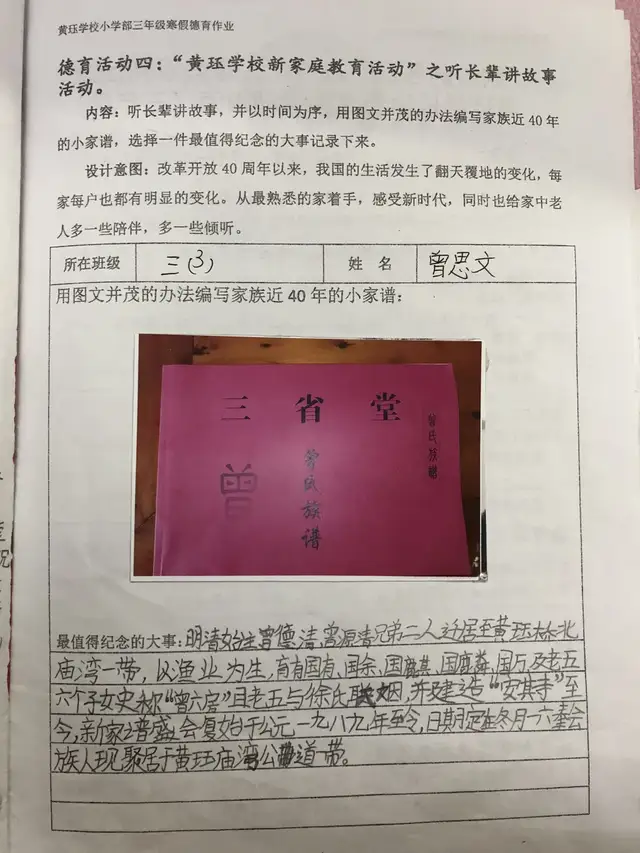 黄珏学校小学部三年级寒假德育作业
德育活动四：“黄珏学校新家庭教育活动”之听长辈讲故事
活动。
内容：听长辈讲故事，并以时间为序，用图文并茂的办法编写家族近 40 年
的小家谱，选择一件最值得纪念的大事记录下来。
设计意图：改革开放 40 周年以来，我国的生活发生了翻天覆地的变化，每
家每户也都有明显的变化。从最熟悉的家着手，感受新时代，同时也给家中老
人多一些陪伴，多一些倾听。
所在班级 三(3) 姓 名 曾思文
用图文并茂的办法编写家族近 40 年的小家谱：
三 省 堂
曾氏族谱
曾
曾氏族谱
最值得纪念的大事：明清始主曾德清,曾源清兄弟二人迁居至黄珏林北
庙湾一带，以渔业为生，育有国有、国余、国麒其、国麟、国万,及老五
六个子女史称“曾六房”且老五与徐氏联姻，并建造“安其寺”至
今,新家谱盛会复始于公元一九八九年至今,日期定在冬月一六
族人现聚居于黄珏庙湾公道一带。